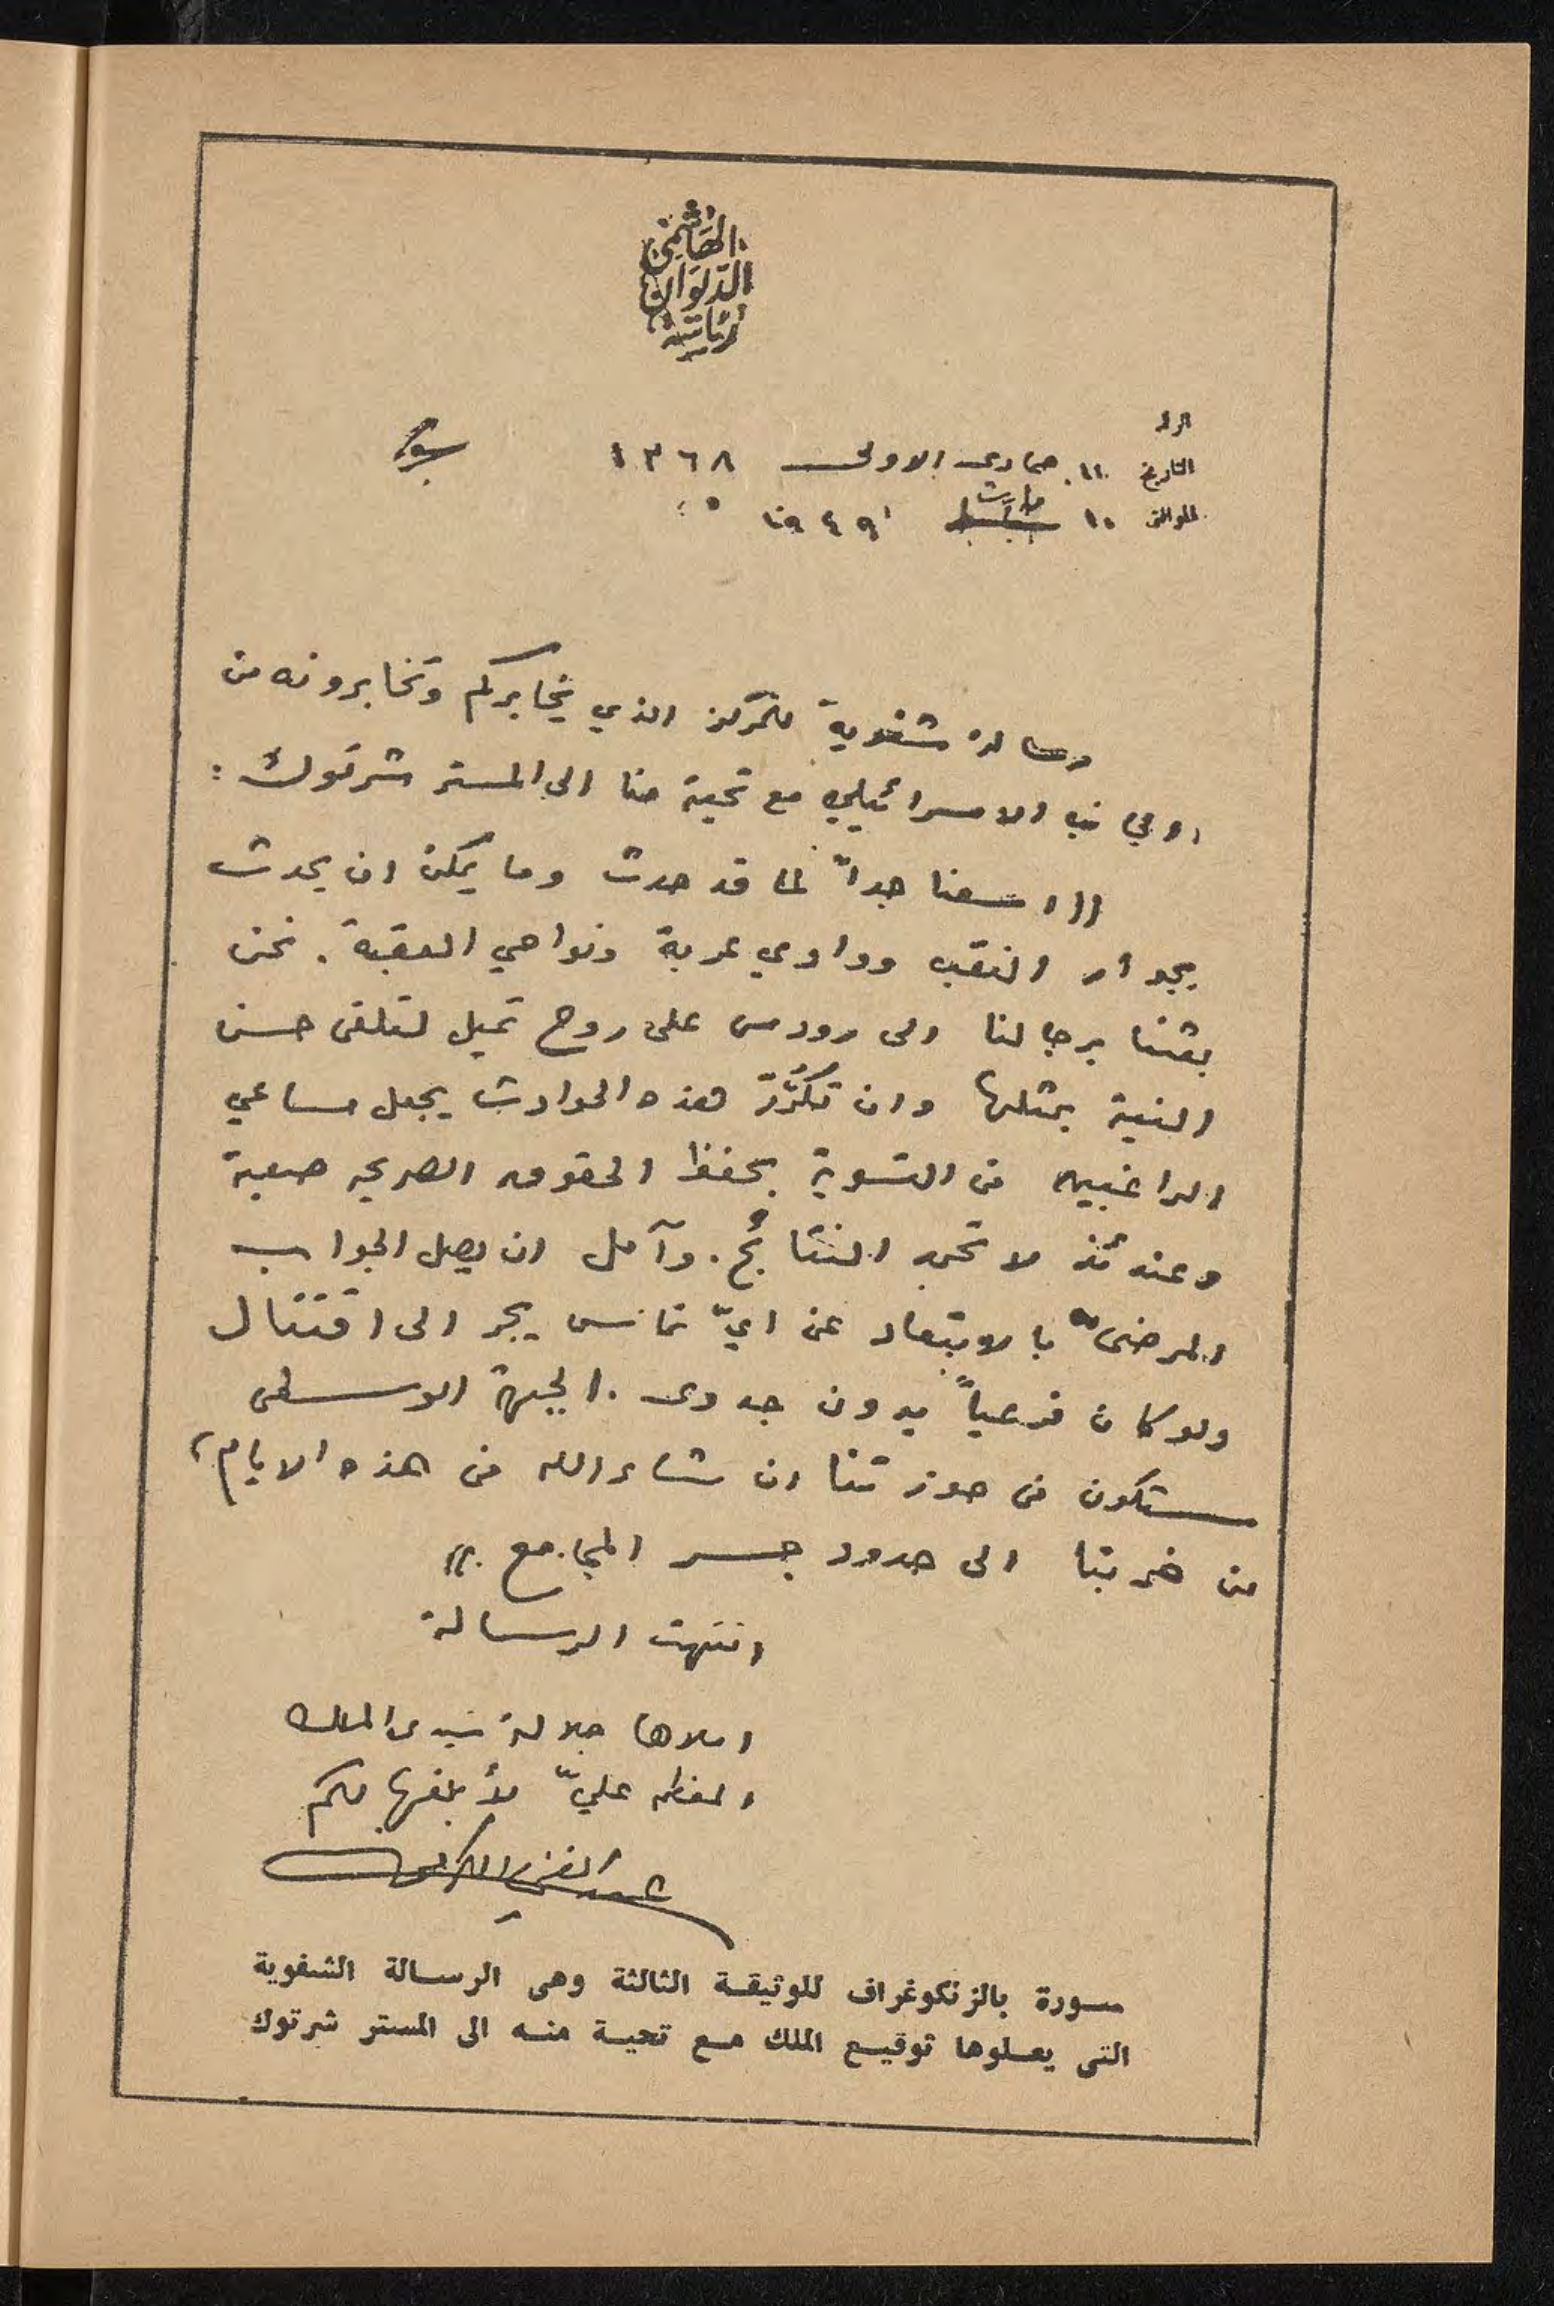 رئاسة
الديوان
الهاشمي
الرقم
التاريخ ١١ جمادى الاولى ١٣٦٨
الموافق ١٠ شباط مارت ١٩٤٩
رسالة شفوية للمركز الذي يخابركم وتخابرونه من
الجانب الاسرائيلي مع تحية منا الى المستر شرتوك :
((اسفنا جداً لما قد حدث وما يمكن ان يحدث
بجوار النقب ووادي عربة ونواحي العقبة . نحن
بعثنا برجالنا الى رودس على روح تميل لتلقى حسن
النية بمثلها وان تكرّر هذه الحوادث يجعل مساعي
الراغبين في التسوية بحفظ الحقوق الصريحه صعبة
وعندئذ لا تحمد النتائج . وآمل ان يصل الجواب
المرضى بالابتعاد عن ايّ تماس يجر الى اقتتال
ولو كان فرعياً بدون جدوى . الجبهة الوسطى
ستكون في حوزتنا ان شاء الله في هذه الايام ،
من ضربتا الى حدود جسر المجامع . ))
انتهت الرسالة
املاها جلالة سيدى الملك
المعظم عليّ لأبلغها لكم
صورة بالزنكوغراف للوثيقة الثالثة وهى الرسالة الشفوية
التى يعلوها توقيع الملك مع تحية منه الى المستر شرتوك